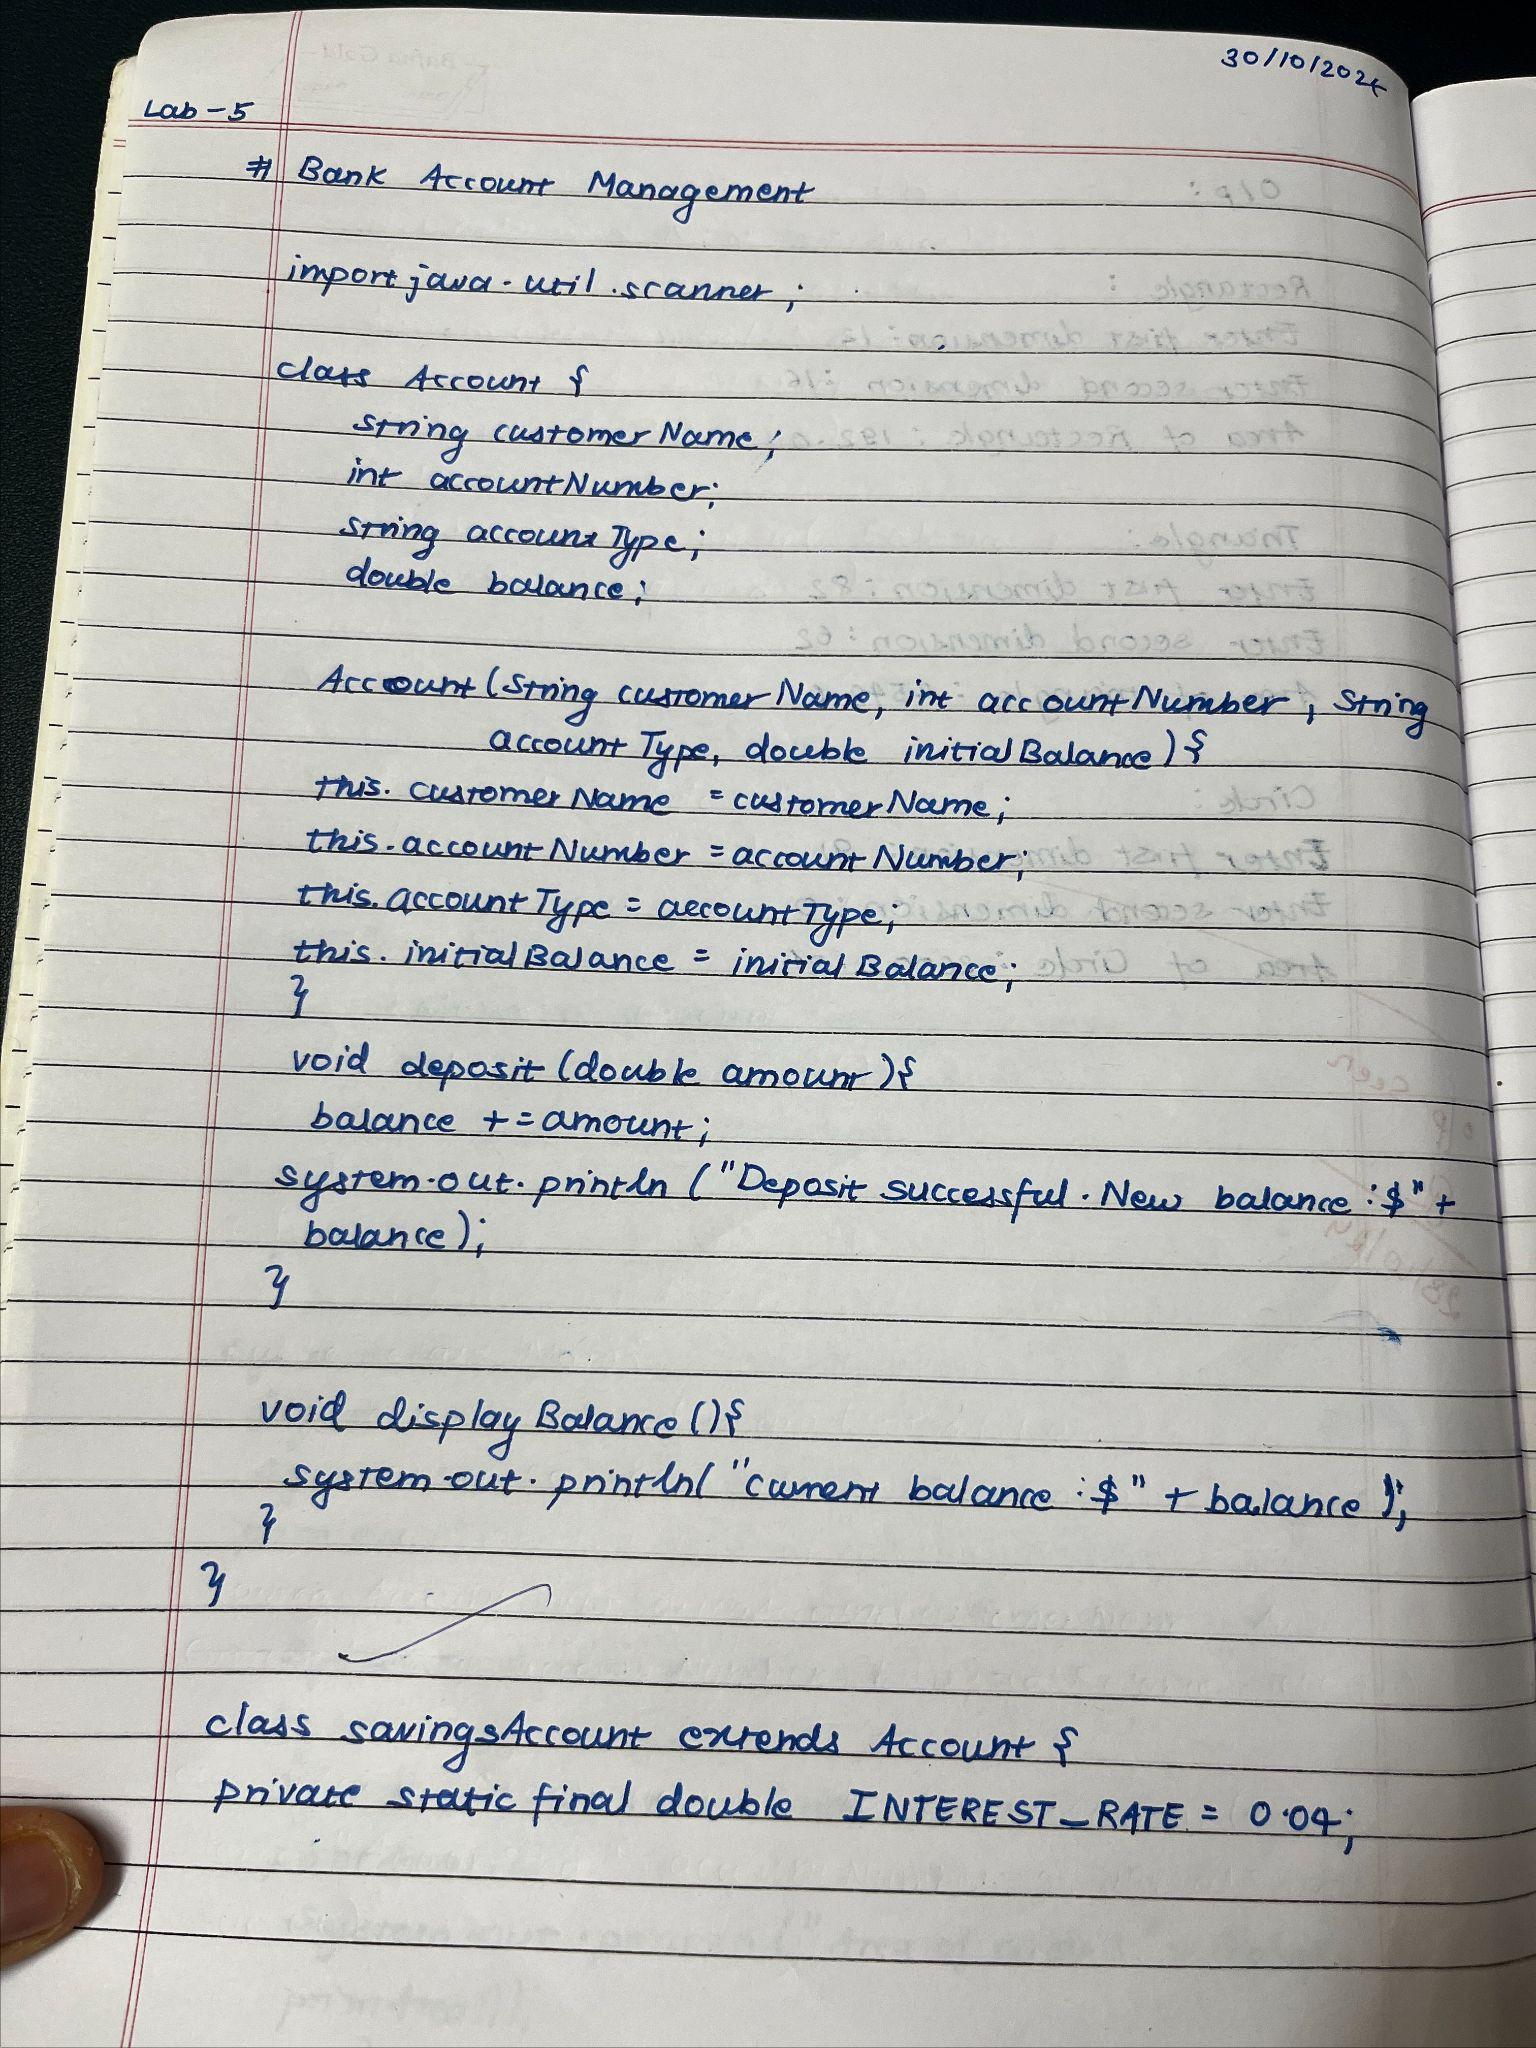 30/10/2024
Lab - 5
# Bank Account Management
import java.util.scanner;
class Account {
string customerName;
int accountNumber;
string accountType;
double balance;
Account (String customerName, int accountNumber, String
accountType, double initialBalance) {
this.customerName = customerName;
this.accountNumber = accountNumber;
this.accountType = accountType;
this.initialBalance = initialBalance;
}
void deposit (double amount) {
balance += amount;
system.out.println ("Deposit successful. New balance : $" +
balance);
}
void displayBalance () {
system.out.println( "current balance : $" + balance );
}
}
class savingsAccount extends Account {
private static final double INTEREST_RATE = 0.04;